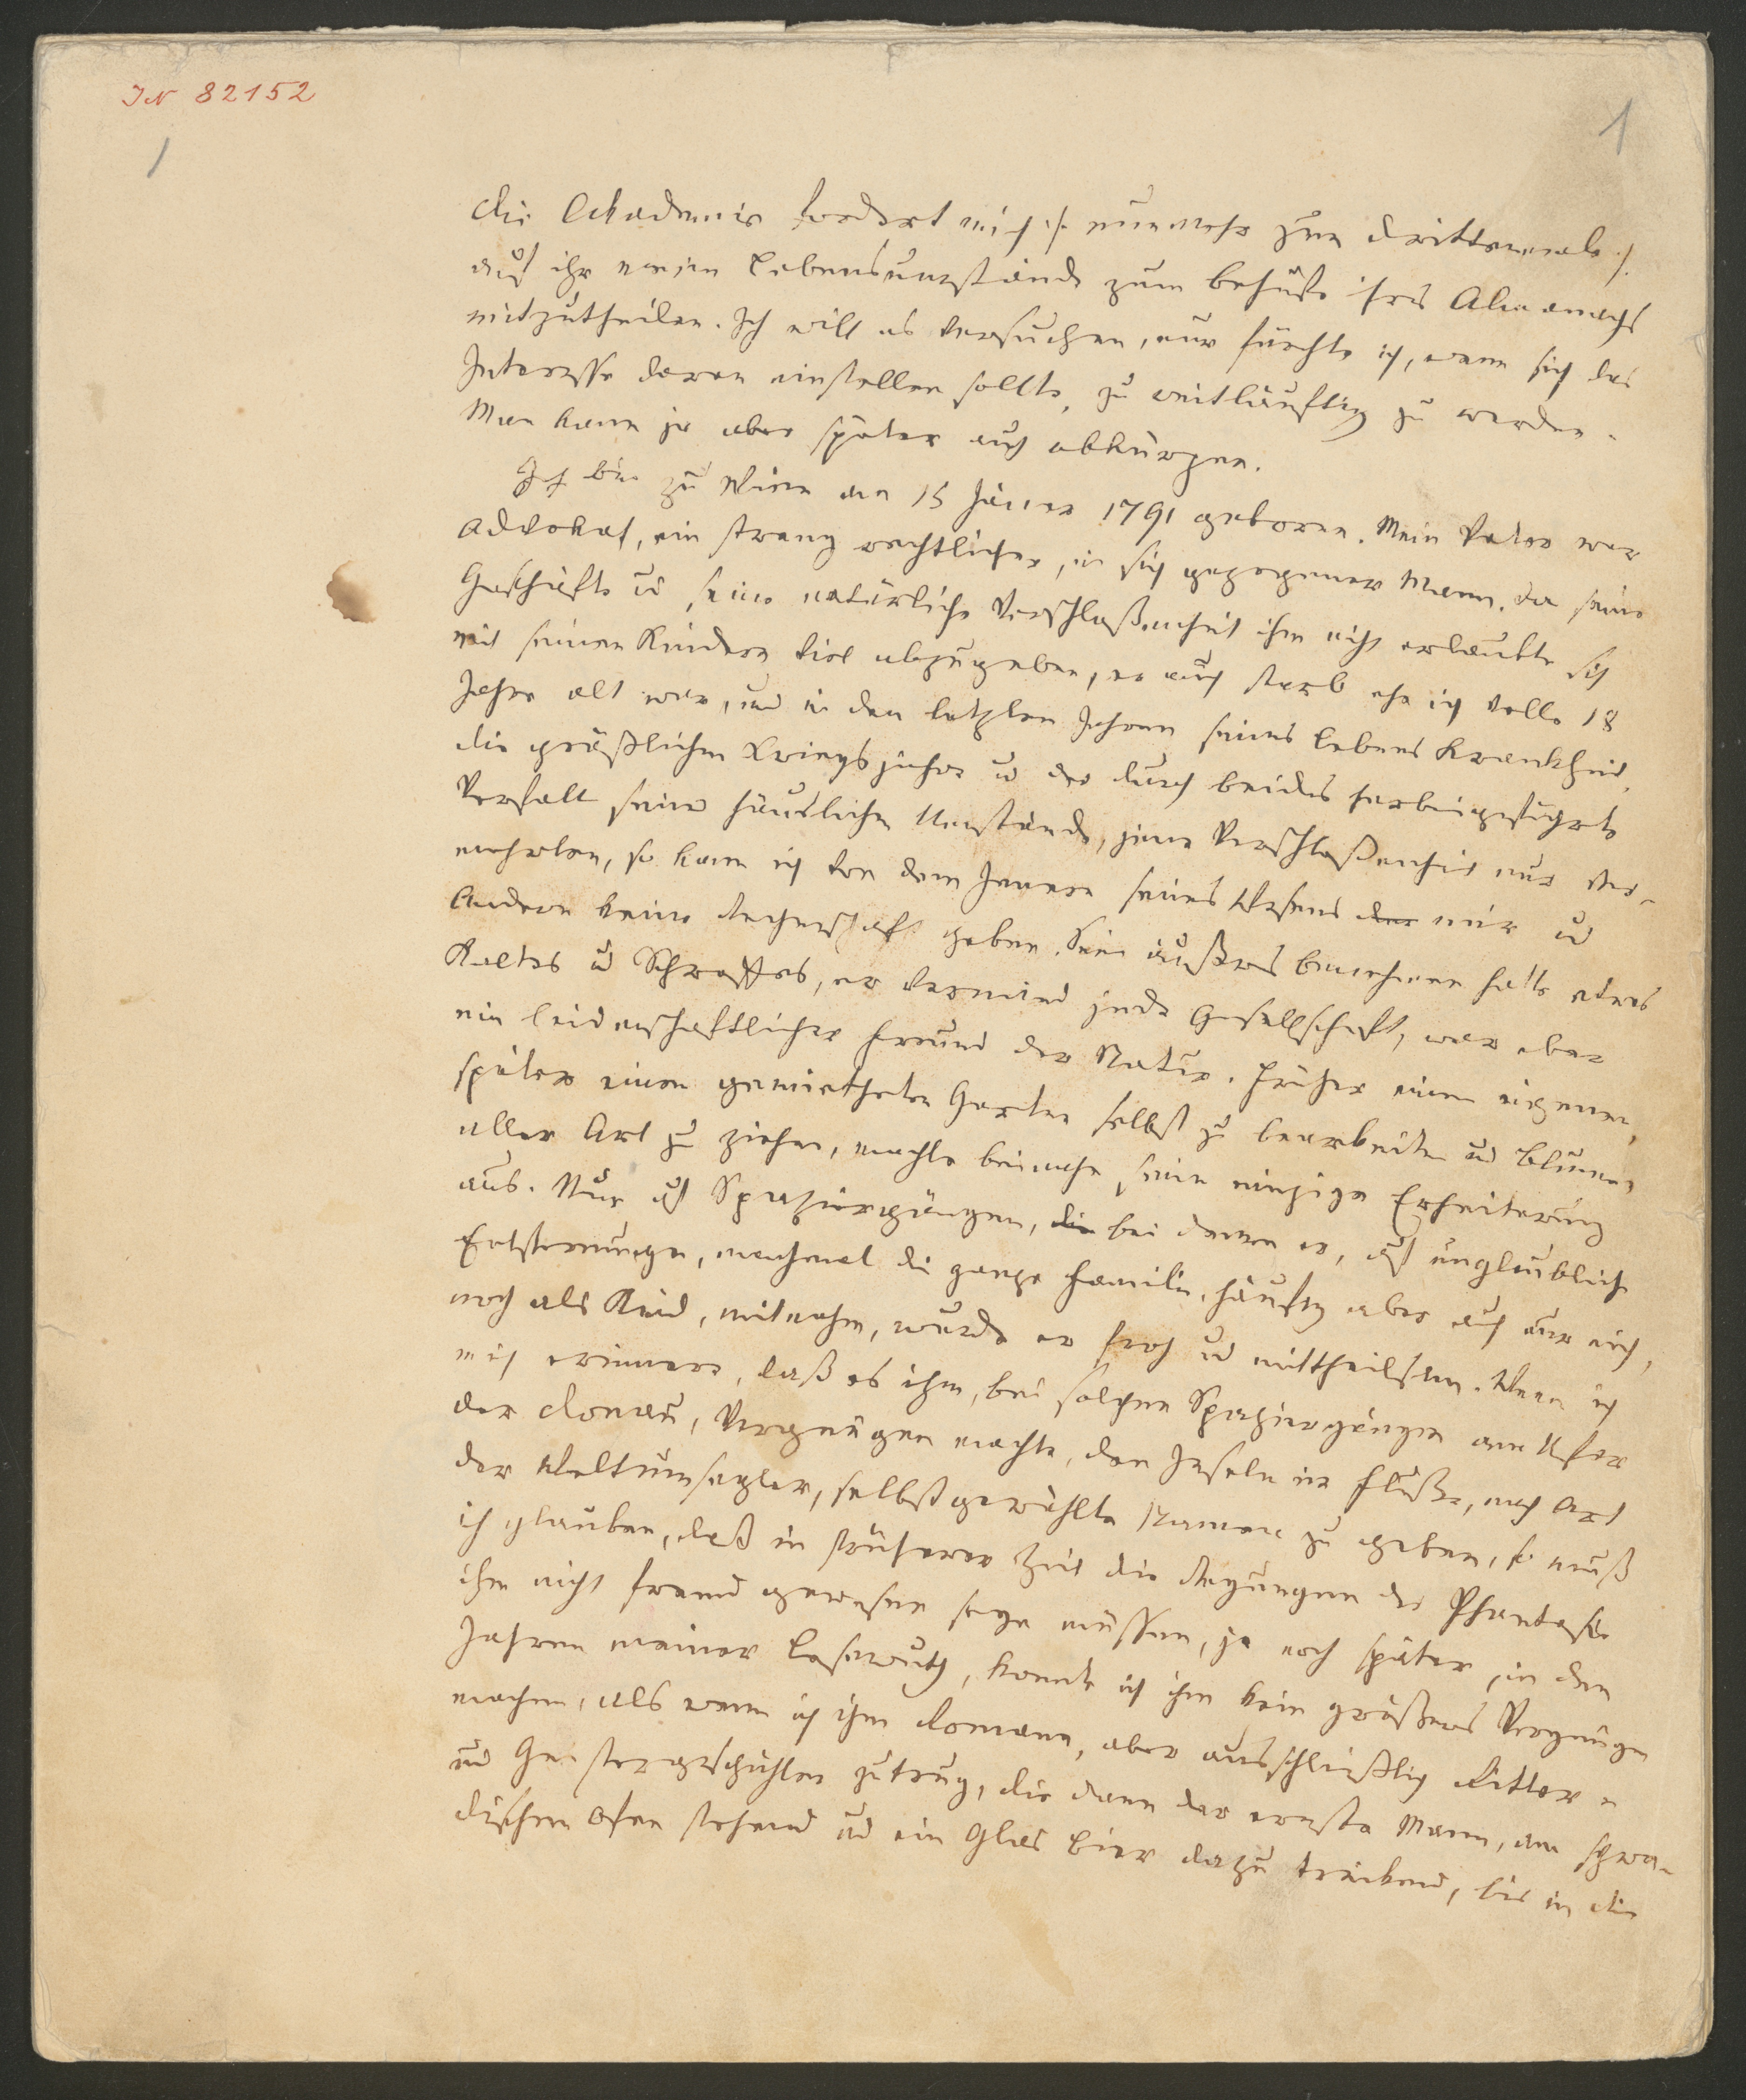 IN 82152
1
1
Die Akademie fordert mich /: nunmehr zum drittenmale :/
auf ihr meine Lebensumstände zum Behufe ihres Almanachs
mitzutheilen. Ich will es versuchen, nur fürchte ich, wenn sich das
Interesse daran einstellen sollte, zu weitläuftig zu werden.
Man kann ja aber später auch abkürzen.
Ich bin zu Wien am 15 Jänner 1791 geboren. Mein Vater war
Advokat, ein streng rechtlicher, in sich gezogener Mann. Da seine
Geschäfte u seine natürliche Verschloßenheit ihm nicht erlaubte sich
mit seinen Kindern viel abzugeben, er auch starb ehe ich volle 18
Jahre alt war, und in den letzten Jahren seines Lebens Krankheit,
die gräßlichen Kriegsjahre u der durch beides herbeigeführte
Verfall seiner häuslichen Umstände, jene Verschloßenheit nur ver-
mehrten, so kann ich von dem Innern seines Wesens der mir u
Andern keine Rechenschaft geben. Sein äußeres Benehmen hatte etwas
Kaltes u Schroffes, er vermied jede Gesellschaft, war aber
ein leidenschaftlicher Freund der Natur. Früher einen eigenen,
später einen gemietheten Garten selbst zu bearbeiten u Blumen
aller Art zu ziehen, machte beinahe seine einzige Erheiterung
aus. Nur auf Spaziergängen, die bei denen er, auf unglaubliche
Entfernungen, manchmal die ganze Familie, häufig aber auch nur mich,
noch als Kind, mitnahm, wurde er froh u mittheilsam. Wenn ich
mich erinnere, daß es ihm, bei solchen Spaziergängen am Ufer
der Donau, Vergnügen machte, den Inseln im Fluße, nach Art
der Weltumsegler, selbstgewählte Namen zu geben, so muß
ich glauben, daß in früherer Zeit die Regungen der Phantasie
ihm nicht fremd gewesen seyn müssen, ja noch später, in den
Jahren meiner Lesewuth, konnte ich ihm kein größeres Vergnügen
machen, als wenn ich ihm Romane, aber ausschließlich Ritter-
und Geistergeschichten zutrug, die dann der ernste Mann, am schwe-
dischen Ofen stehend und ein Glas Bier dazu trinkend, bis in die